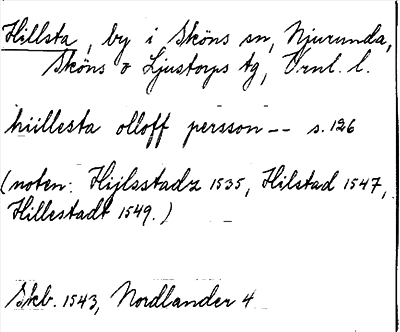 Hillsta, by i Sköns sn, Njurunda,
Sköns o Ljustorps tg, Vrnl. l.
hiillesta olloff persson -- s. 126
(noten: Hijlsstadz 1535, Hilstad 1547,
Hillestadt 1549.)
Skb. 1543, Nordlander 4